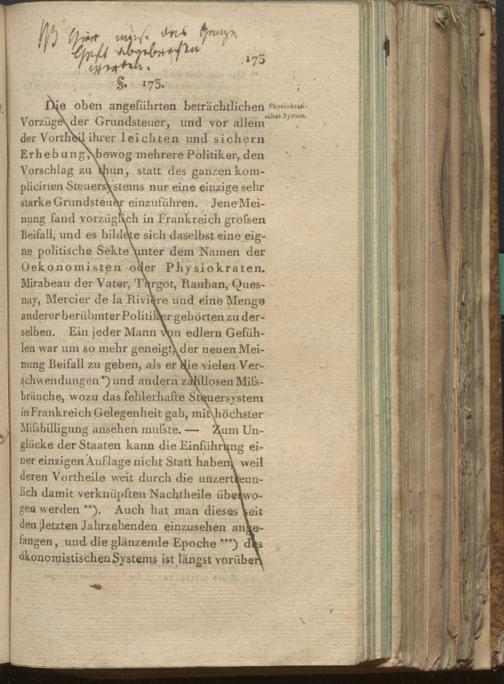 NB Hier muß das Ganze
abgebrochen
werden.
175
§. 173.
Die oben angeführten beträchtlichen
Physiokrati-
sches System.
Vorzüge der Grundsteuer, und vor allem
der Vortheil ihrer leichten und sichern
Erhebung, bewog mehrere Politiker, den
Vorschlag zu thun, statt des ganzen kom-
plicirten Steuersystems nur eine einzige sehr
starke Grundsteuer einzuführen. Jene Mei-
nung fand vorzüglich in Frankreich grofsen
Beifall, und es bildete sich daselbst eine eig-
ne politische Sekte unter dem Namen der
Oekonomisten oder Physiokraten.
Mirabeau der Vater, Turgot, Rauban, Ques-
nay, Mercier de la Riviere und eine Menge
anderer berühmter Politiker gehörten zu der-
selben. Ein jeder Mann von edlern Gefüh-
len war um so mehr geneigt, der neuen Mei-
nung Beifall zu geben, als er die vielen Ver-
schwendungen *) und andern zahllosen Mifs-
bräuche, wozu das fehlerhafte Steuersystem
in Frankreich Gelegenheit gab, mit höchster
Mifsbilligung ansehen mufste. — Zum Un-
glücke der Staaten kann die Einführung ei-
ner einzigen Auflage nicht Statt haben, weil
deren Vortheile weit durch die unzertrenn-
lich damit verknüpften Nachtheile überwo-
gen werden **). Auch hat man dieses seit
den letzten Jahrzehenden einzusehen ange-
fangen, und die glänzende Epoche ***) des
ökonomistischen Systems ist längst vorüber,